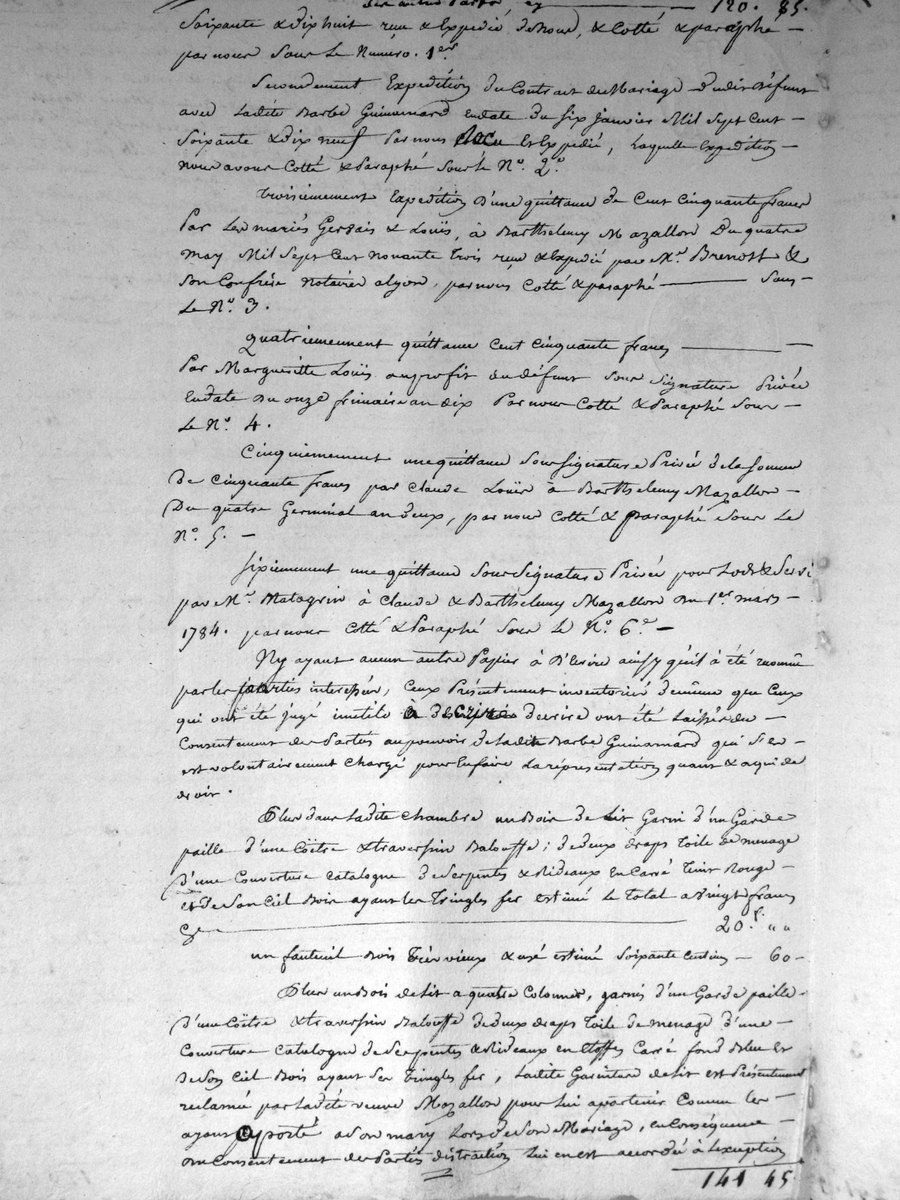 des autres Parts, cy 120. 85.
Soixante & dix huit reçu & Expedié de nous, & Cotté & paraphé —
par nous sous Le Numéro. 1er.
Secondement Expédition du Contrait de Mariage dudit Défunt
avec Ladite Barbe Guinamard en date du six janvier Mil Sept Cent —
Soixante & Dix neuf Par nous Recu et Expedié, Laquelle Expédition —
nous avons Cotté & Paraphé sous le No. 2o.
Troisiemement Expédition d'une quittance de Cent Cinquante francs
Par Les mariés Gervais & Louïs, à Barthelemy Mazallon Du quatre
may Mil Sept Cent nonante trois reçu & Expedié par Me. Brenott &
Son Confrére notaires a Lyon, par nous Cotté & paraphé — Sous
Le No. 3.
Quatriemement quittance Cent Cinquante francs —
Par Marguerite Louïs au profit du défunt Sous Signature Privée
En date du onze frimaire an dix Par nous Cotté & Paraphé Sous —
Le No. 4.
Cinquiemement une quittance Sous Signature Privée de la Somme
De Cinquante francs par Claude Louïs à Barthelemy Mazallon —
Du quatre Germinal an deux, par nous Cotté & paraphé Sous Le
No. 5. —
Sixiemement une quittance Sous Signature Privée pour Lods & Servi
par Mr. Matagrin à Claude & Barthelemy Mazallon du 1er mars —
1784. par nous Cotté & Paraphé Sous Le No. 6o —
N'y ayant aucun autre Papier à D'Ecrire ainsy qu'il à été reconnu
par les parties interessées, Ceux Présentement inventoriés de même que Ceux
qui ont été jugé inutile à descrire decrire ont été Laissés du —
Consentement des Parties au pouvoir de Ladite Barbe Guinamard qui s'en
est volontairement Chargé pour En faire La réprésentation quant & a qui de
droit.
Plus dans Ladite Chambre un Bois de Lit Garni d'un Garde
paille d'une Coëtre & traversin Balouffe; de deux draps Toile de menage
D'une Couverture Catalogne de Serpentes & Rideaux En Carré Teint Rouge —
et de Son Ciel Bois ayant Les Tringles fer estimé Le Total a vingt francs
Cy 20.f „ „
un fauteuil Bois Très vieux & usé estimé Soixante Centimes — 60 —
Plus un Bois de Lit a quatre Colonnes, garni d'un Garde paille
D'une Coëtre & traversin Balouffe de deux draps Toile de menage d'une —
Couverture Catalogne de Serpentes & Rideaux en Etoffes Carré fond Bleu et
de Son Ciel Bois ayant Ses Tringles fer, Ladite Garniture de Lit est Présentement
reclamé par Ladite veuve Mazallon pour Lui apartenir Comme Les —
ayant aporté a Son mary Lors de Son Mariage, en Conséquence —
du Consentement des Parties distraction Lui en est accordée à L'exception
141 45